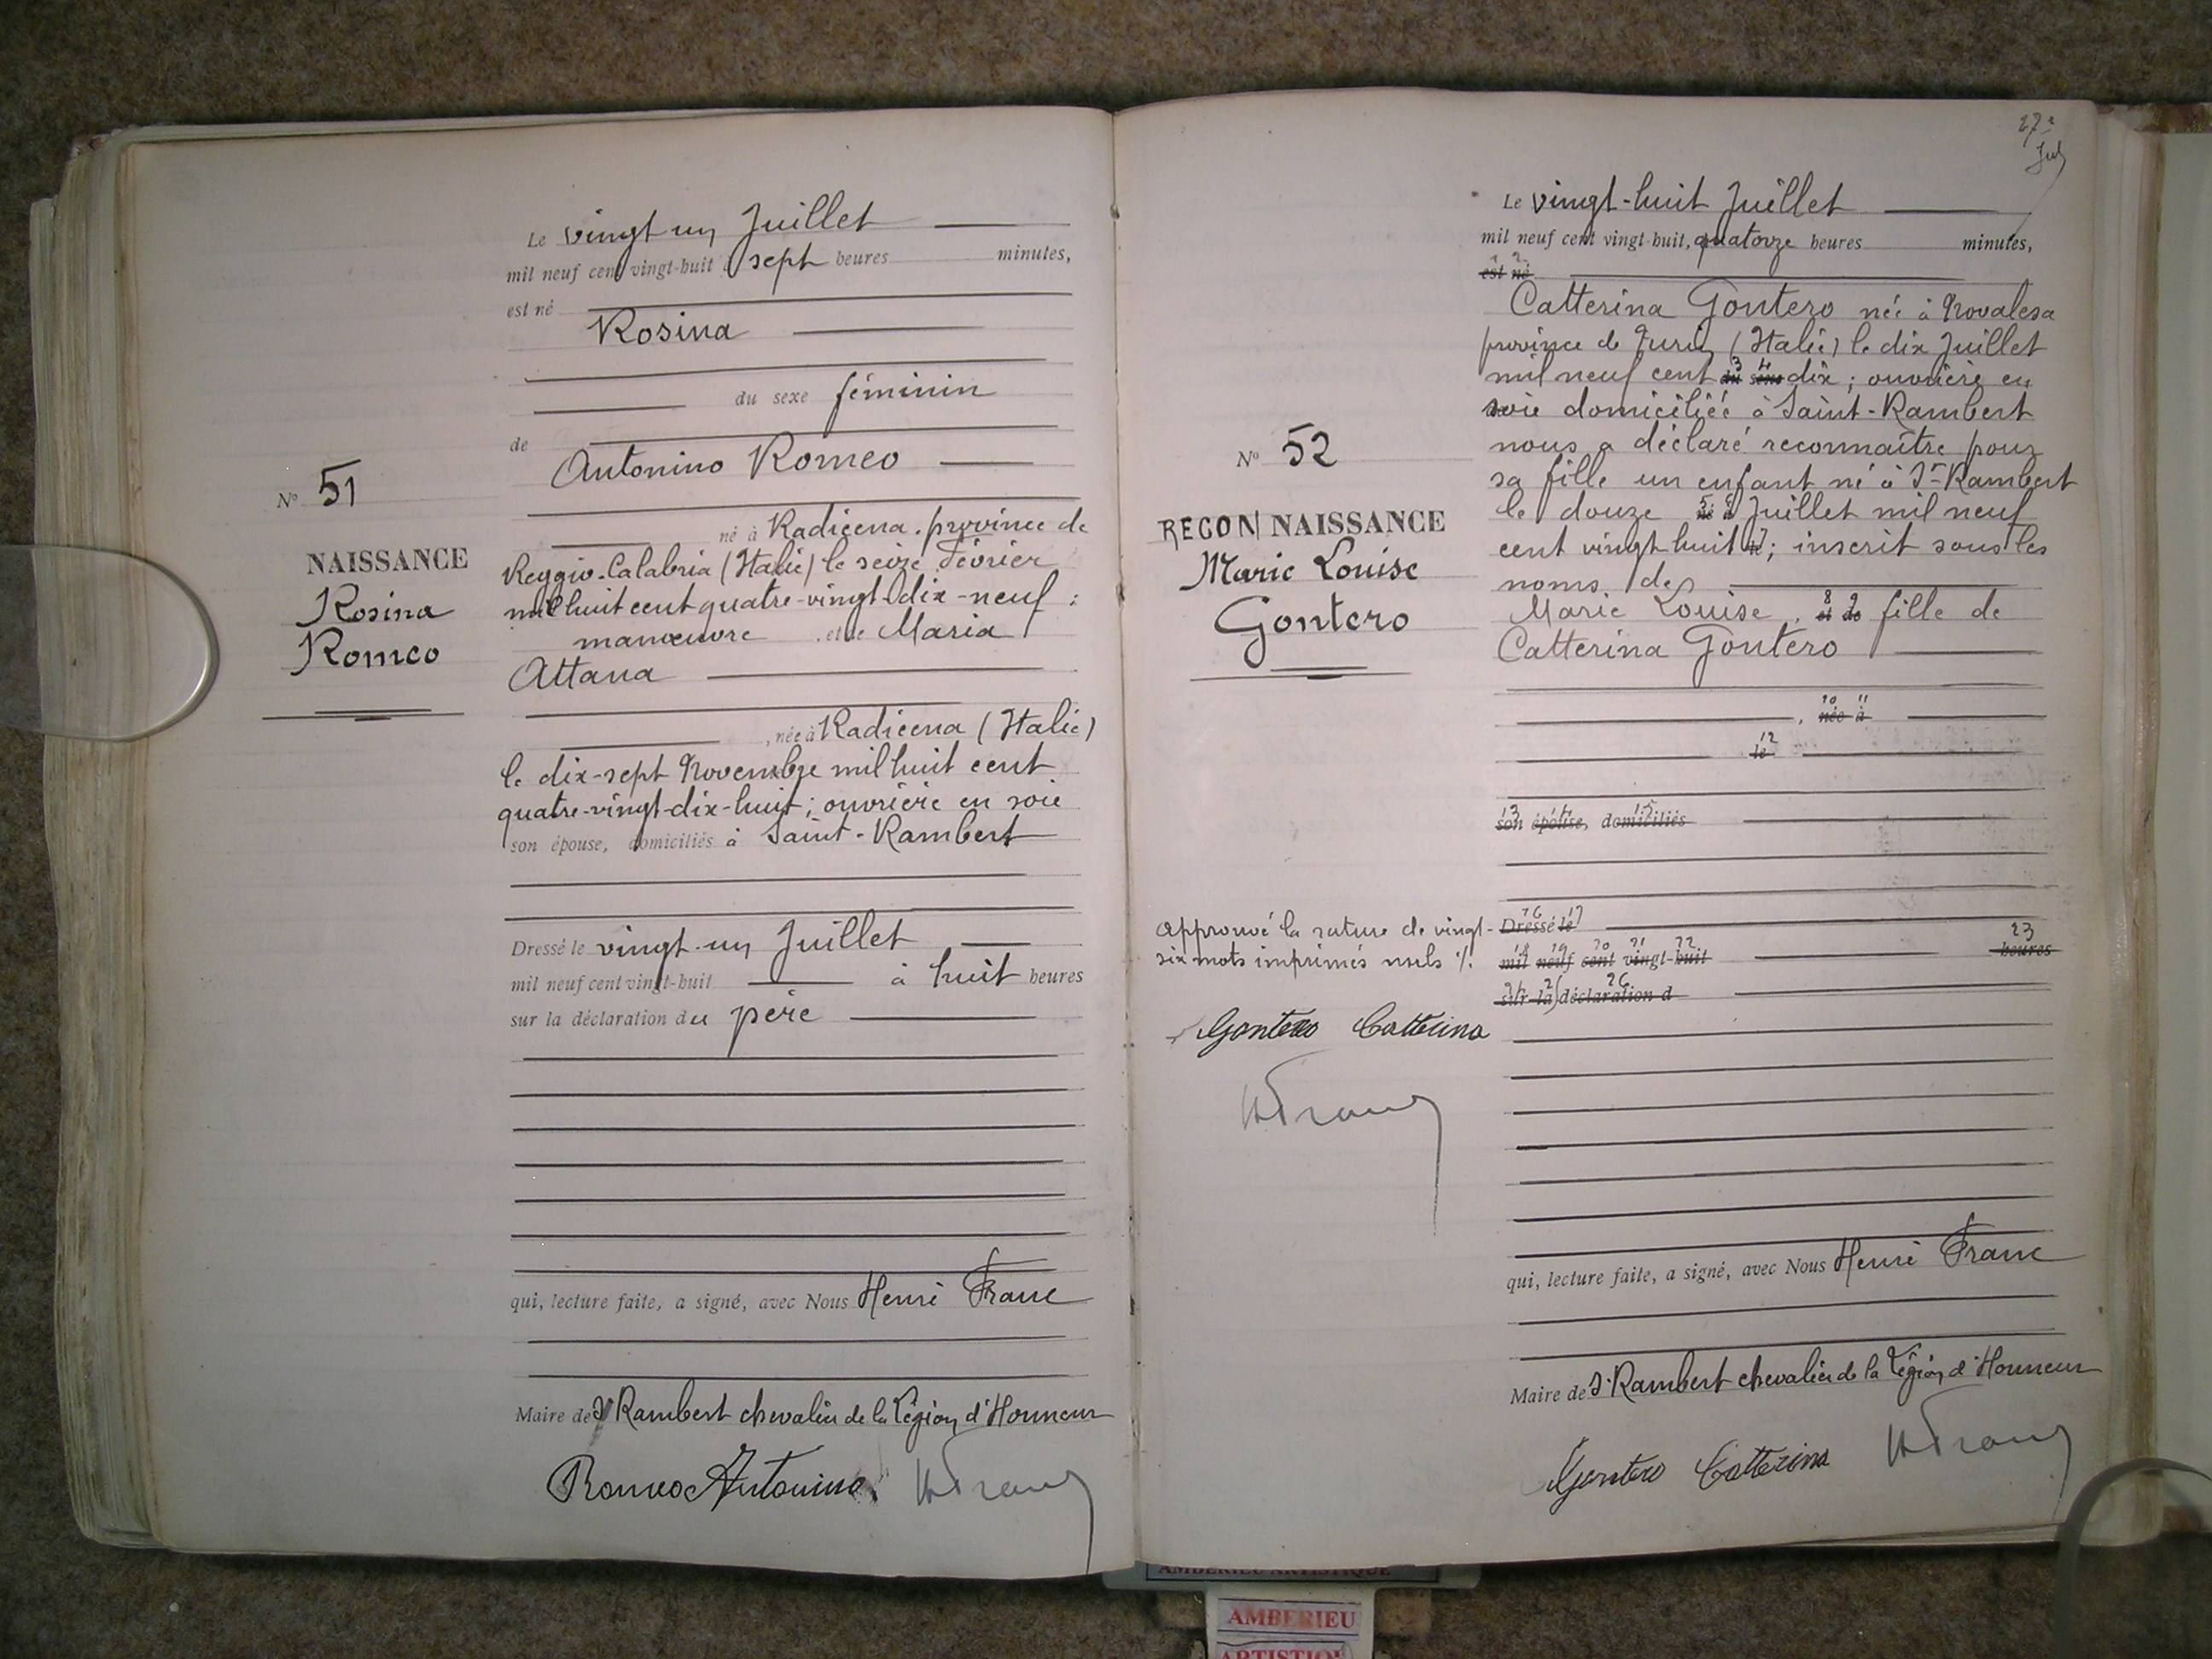 Le vingt-un Juillet
mil neuf cent vingt-huit à sept heures minutes,
est né
Rosina
du sexe féminin
de
Antonino Romeo
né à Radicena. province de
Reggio-Calabria (Italie) le seize Février
mil huit cent quatre-vingt-dix-neuf ;
manœuvre . et de Maria
Attana
, née à Radicena (Italie)
le dix-sept Novembre mil huit cent
quatre-vingt-dix-huit ; ouvrière en soie
son épouse, domiciliés à Saint-Rambert
N° 51
NAISSANCE
Rosina
Romeo
Dressé le vingt-un Juillet
mil neuf cent vingt-huit à huit heures
sur la déclaration du père
qui, lecture faite, a signé, avec Nous Henri Franc
Maire de St Rambert chevalier de la Légion d'Honneur
Romeo Antonino
HFranc
27e
Le vingt-huit Juillet
mil neuf cent vingt-huit, quatorze heures minutes,
1 2
est né
Catterina Gontero née à Novalesa
province de Turin (Italie) le dix Juillet
mil neuf cent du sexe dix ; ouvrière en
3 4
soie domiciliée à Saint-Rambert
nous a déclaré reconnaître pour
sa fille un enfant né à St-Rambert
le douze né à Juillet mil neuf
5 6
cent vingt huit le ; inscrit sous les
7
noms de
Marie Louise , et de fille de
8 9
Catterina Gontero
10 11
, née à
12
le
13 14 15
son épouse, domiciliés
N° 52
RECONNAISSANCE
Marie Louise
Gontero
Approuvé la rature de vingt-
six mots imprimés nuls ./.
Gontero Catterina
HFranc
16 17
Dressé le
18 19 20 21 22 23
mil neuf cent vingt-huit heures
24 25 26
sur la déclaration d
qui, lecture faite, a signé, avec Nous Henri Franc
Maire de St Rambert chevalier de la Légion d'Honneur
Gontero Catterina
HFranc
AMBERIEU ARTISTIQUE
AMBERIEU